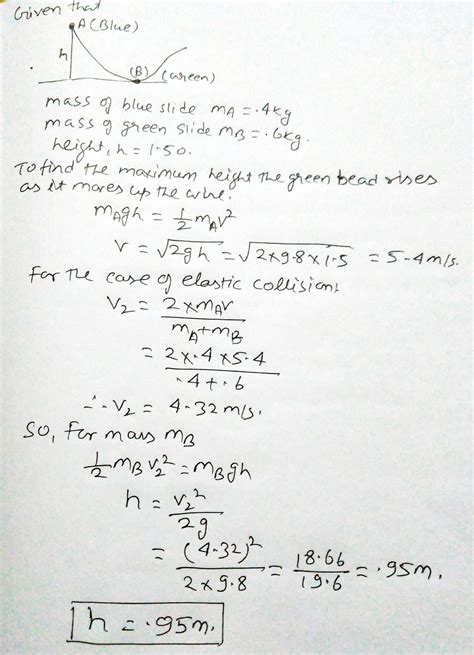 Given that
A (Blue)
h
(B) (Green)
mass of blue slide mA = .4kg
mass of green slide mB = .6kg.
height, h = 1.50.
To find the maximum height the green bead rises
as it moves up the wire.
mAgh = 1/2 mAv²
v = √2gh = √2×9.8×1.5 = 5.4m/s.
For the case of elastic collision,
V2 = 2×mAv / mA+mB
= 2×.4×5.4 / .4+.6
∴ V2 = 4.32 m/s.
So, for mass mB
1/2 mB v2² = mBgh
h = v2² / 2g
= (4.32)² / 2×9.8 = 18.66 / 19.6 = .95m.
h = .95m.